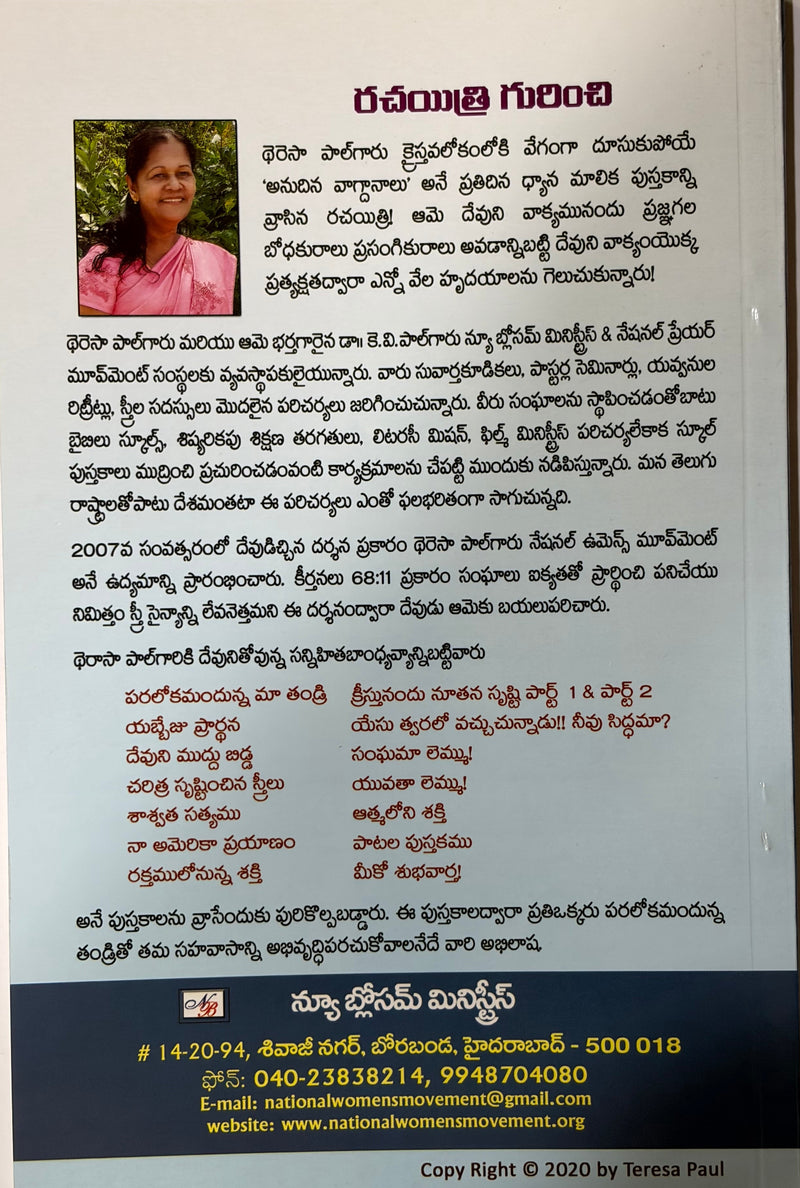 రచయిత్రి గురించి
థెరెసా పాల్‌గారు క్రైస్తవలోకంలోకి వేగంగా దూసుకుపోయే
'అనుదిన వాగ్దానాలు' అనే ప్రతిదిన ధ్యాన మాలిక పుస్తకాన్ని
వ్రాసిన రచయిత్రి! ఆమె దేవుని వాక్యమునందు ప్రజ్ఞగల
బోధకురాలు ప్రసంగికురాలు అవడాన్నిబట్టి దేవుని వాక్యంయొక్క
ప్రత్యక్షతద్వారా ఎన్నో వేల హృదయాలను గెలుచుకున్నారు!
థెరెసా పాల్‌గారు మరియు ఆమె భర్తగారైన డా॥ కె.వి.పాల్‌గారు న్యూ బ్లోసమ్ మినిస్ట్రీస్ & నేషనల్ ప్రేయర్
మూవ్‌మెంట్ సంస్థలకు వ్యవస్థాపకులైయున్నారు. వారు సువార్తకూడికలు, పాస్టర్ల సెమినార్లు, యవ్వనుల
రిట్రీట్లు, స్త్రీల సదస్సులు మొదలైన పరిచర్యలు జరిగించుచున్నారు. వీరు సంఘాలను స్థాపించడంతోబాటు
బైబిలు స్కూల్స్, శిష్యరికపు శిక్షణ తరగతులు, లిటరసీ మిషన్, ఫిల్మ్ మినిస్ట్రీస్ పరిచర్యలేకాక స్కూల్
పుస్తకాలు ముద్రించి ప్రచురించడంవంటి కార్యక్రమాలను చేపట్టి ముందుకు నడిపిస్తున్నారు. మన తెలుగు
రాష్ట్రాలతోపాటు దేశమంతటా ఈ పరిచర్యలు ఎంతో ఫలభరితంగా సాగుచున్నది.
2007వ సంవత్సరంలో దేవుడిచ్చిన దర్శన ప్రకారం థెరెసా పాల్‌గారు నేషనల్ ఉమెన్స్ మూవ్‌మెంట్
అనే ఉద్యమాన్ని ప్రారంభించారు. కీర్తనలు 68:11 ప్రకారం సంఘాలు ఐక్యతతో ప్రార్థించి పనిచేయు
నిమిత్తం స్త్రీ సైన్యాన్ని లేవనెత్తమని ఈ దర్శనంద్వారా దేవుడు ఆమెకు బయలుపరిచారు.
థెరాసా పాల్‌గారికి దేవునితోవున్న సన్నిహితబాంధవ్యాన్నిబట్టివారు
పరలోకమందున్న మా తండ్రి క్రీస్తునందు నూతన సృష్టి పార్ట్ 1 & పార్ట్ 2
యబ్బేజు ప్రార్థన యేసు త్వరలో వచ్చుచున్నాడు!! నీవు సిద్ధమా?
దేవుని ముద్దు బిడ్డ సంఘమా లెమ్ము!
చరిత్ర సృష్టించిన స్త్రీలు యువతా లెమ్ము!
శాశ్వత సత్యము ఆత్మలోని శక్తి
నా అమెరికా ప్రయాణం పాటల పుస్తకము
రక్తములోనున్న శక్తి మీకో శుభవార్త!
అనే పుస్తకాలను వ్రాసేందుకు పురికొల్పబడ్డారు. ఈ పుస్తకాలద్వారా ప్రతిఒక్కరు పరలోకమందున్న
తండ్రితో తమ సహవాసాన్ని అభివృద్ధిపరచుకోవాలనేదే వారి అభిలాష.
NB న్యూ బ్లోసమ్ మినిస్ట్రీస్
# 14-20-94, శివాజీ నగర్, బోరబండ, హైదరాబాద్ - 500 018
ఫోన్: 040-23838214, 9948704080
E-mail: nationalwomensmovement@gmail.com
website: www.nationalwomensmovement.org
Copy Right © 2020 by Teresa Paul